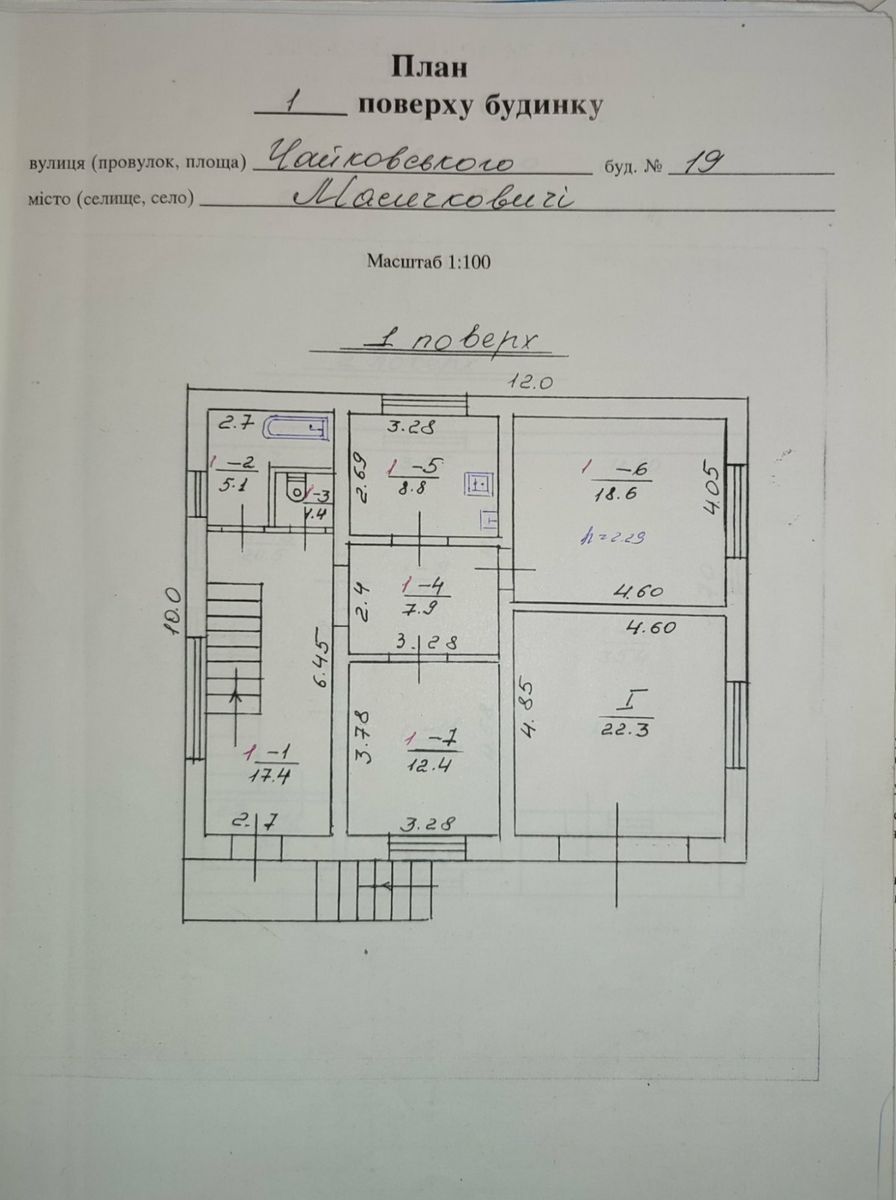 План
1 поверху будинку
вулиця (провулок, площа) Чайковського буд. № 19
місто (селище, село)
Масштаб 1:100
1 поверх
12.0
2.7
3.28
1-2
5.1
2.69
1-5
8.8
1-6
18.6
4.05
1-3
1.4
h=2.29
10.0
2.4
1-4
7.9
4.60
3.28
4.60
6.45
4.85
I
22.3
3.78
1-7
12.4
1-1
17.4
2.7
3.28